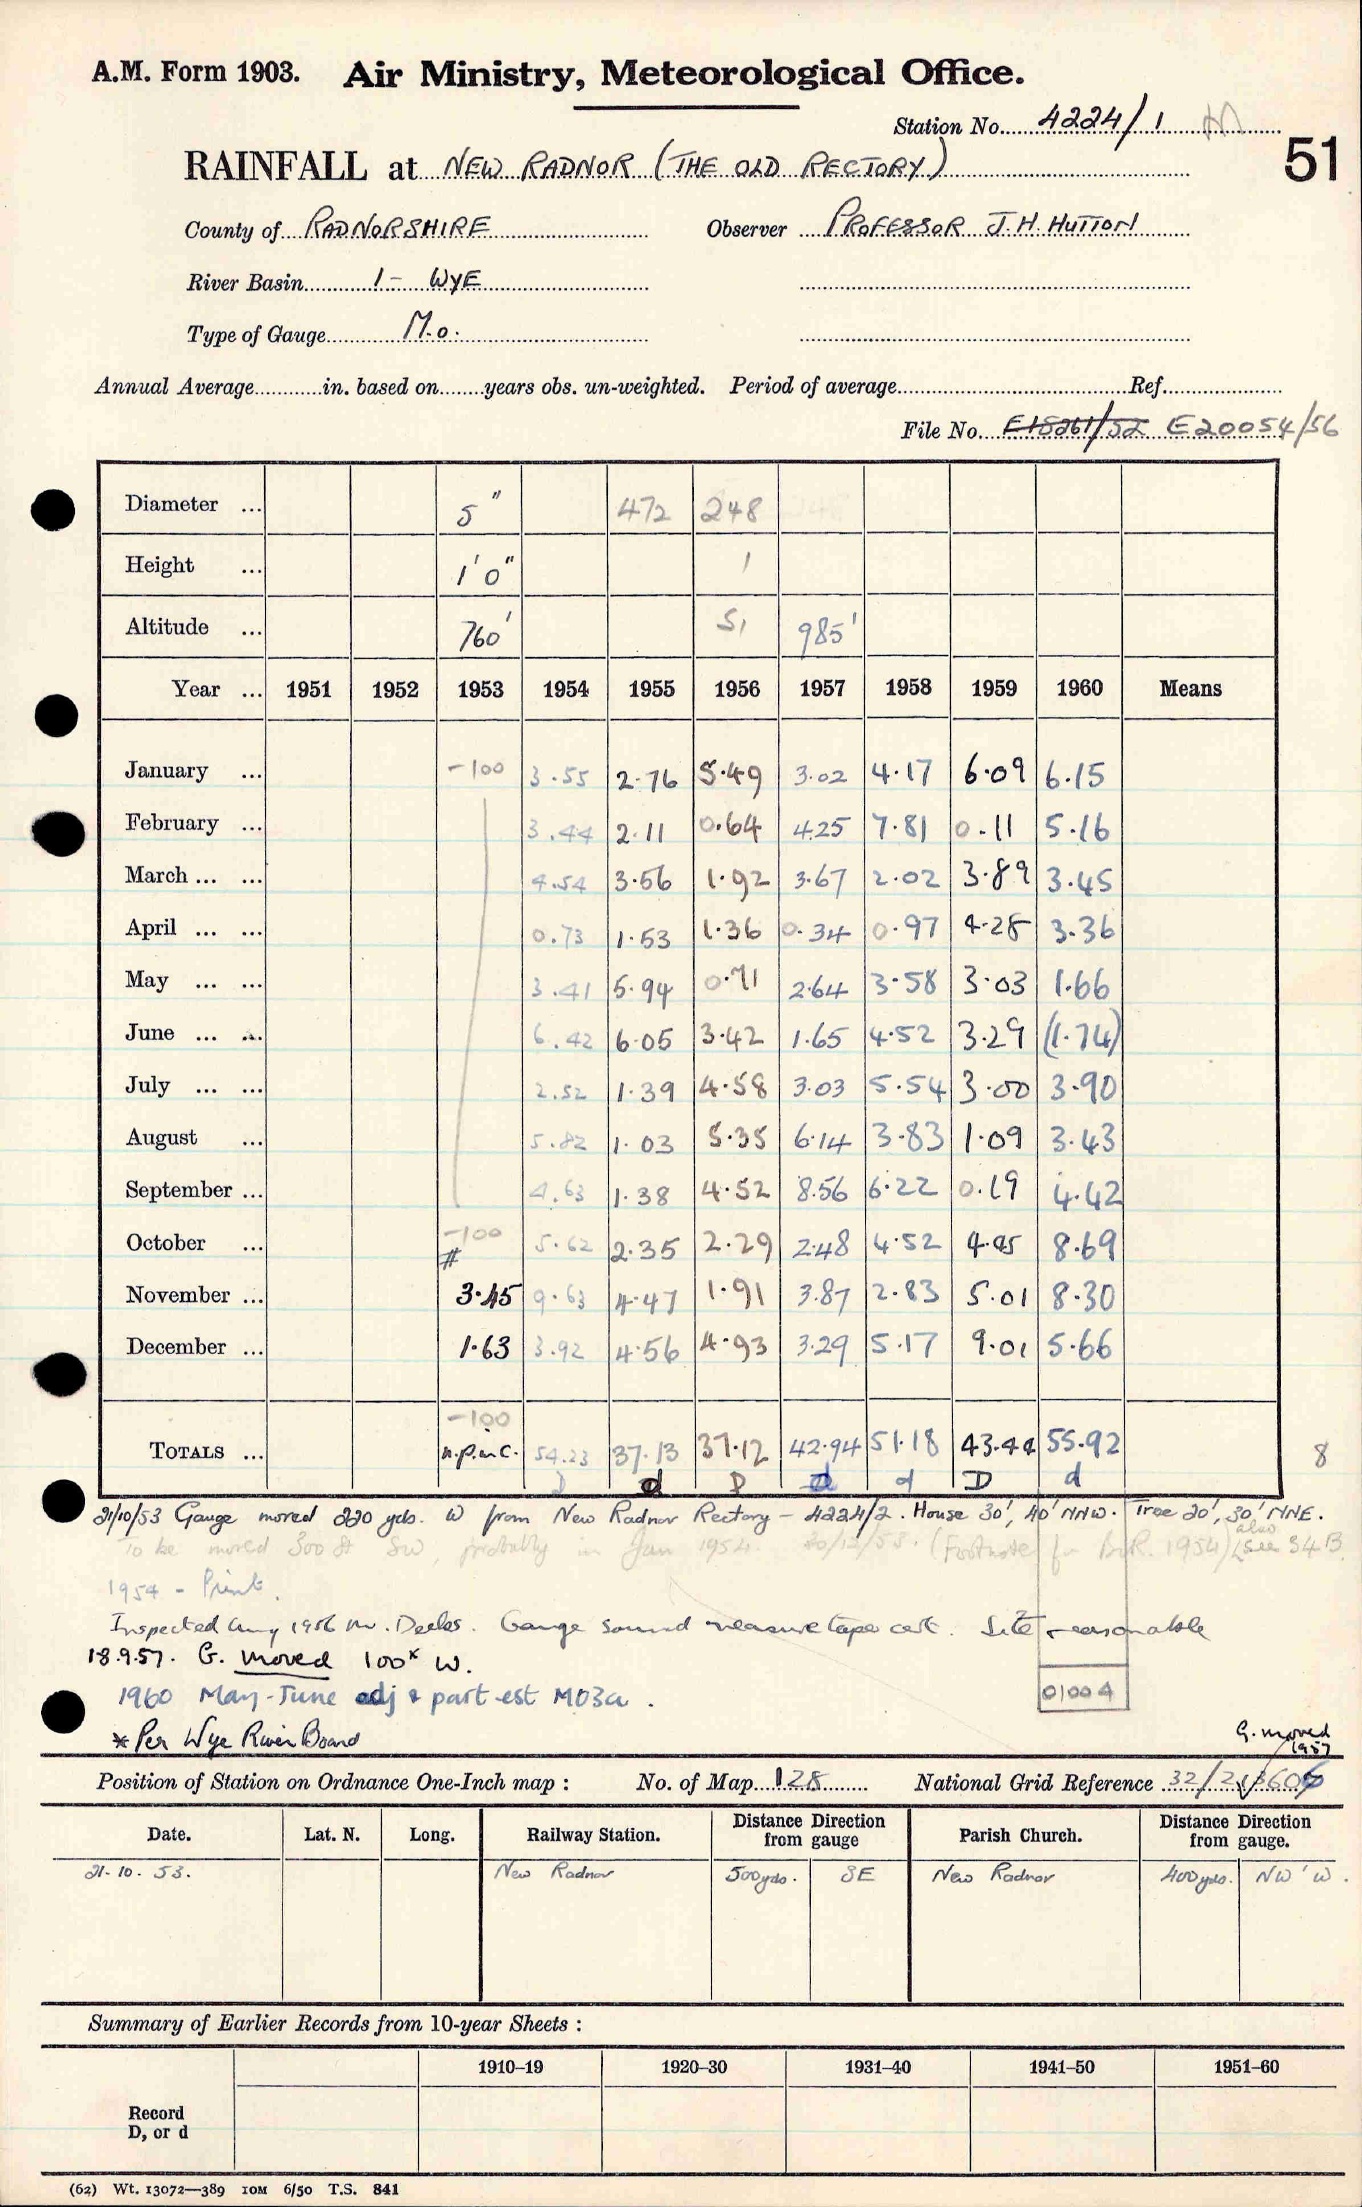 A.M. Form 1903. Air Ministry, Meteorological Office.
Station No. 4224/1 M
51
RAINFALL at NEW RADNOR (THE OLD RECTORY)
County of RADNORSHIRE Observer PROFESSOR J.H. HUTTON
River Basin 1 - WYE
Type of Gauge M.O.
Annual Average in. based on years obs. un-weighted. Period of average Ref.
File No. E18261/52 E20054/56
Diameter ... 5" 472 248
Height ... 1'0" 1
Altitude ... 760' 51 985'
Year ... 1951 1952 1953 1954 1955 1956 1957 1958 1959 1960 Means
January ... -100 3.55 2.76 5.49 3.02 4.17 6.09 6.15
February ... 3.44 2.11 0.64 4.25 7.81 0.11 5.16
March ... ... 4.54 3.56 1.92 3.67 2.02 3.89 3.45
April ... ... 0.73 1.53 1.36 0.34 0.97 4.28 3.36
May ... ... 3.41 5.94 0.71 2.64 3.58 3.03 1.66
June ... ... 6.42 6.05 3.42 1.65 4.52 3.29 (1.74)
July ... ... 2.52 1.39 4.58 3.03 5.54 3.00 3.90
August ... 5.82 1.03 5.35 6.14 3.83 1.09 3.43
September ... 4.63 1.38 4.52 8.56 6.22 0.19 4.42
October ... -100 # 5.62 2.35 2.29 2.48 4.52 4.45 8.69
November ... 3.45 9.63 4.47 1.91 3.87 2.83 5.01 8.30
December ... 1.63 3.92 4.56 4.93 3.29 5.17 9.01 5.66
-100
TOTALS ... n.p.inc. 54.23 37.13 37.12 42.94 51.18 43.44 55.92 8
D d D d d D d
21/10/53 Gauge moved 220 yds. W from New Radnor Rectory - 4224/2. House 30', 40' NNW. Tree 20', 30' NNE.
To be moved 300 ft SW, probably in Jan 1954. 30/12/53. (Footnote for B.R. 1954) also see 54 B
1954 - Print.
Inspected Aug 1956 Mr. Deeks. Gauge sound measure tape cert. Site reasonable
18.9.57. G. moved 100x W.
1960 May-June adj & part est M03a.
01004
* Per Wye River Board
G. moved 1957
Position of Station on Ordnance One-Inch map : No. of Map 128 National Grid Reference 32/213606
Date. Lat. N. Long. Railway Station. Distance Direction from gauge Parish Church. Distance Direction from gauge.
21.10.53. New Radnor 500 yds. SE New Radnor 400 yds. NW'W.
Summary of Earlier Records from 10-year Sheets :
1910–19 1920–30 1931–40 1941–50 1951–60
Record
D, or d
(62) Wt. 13072—389 10M 6/50 T.S. 841